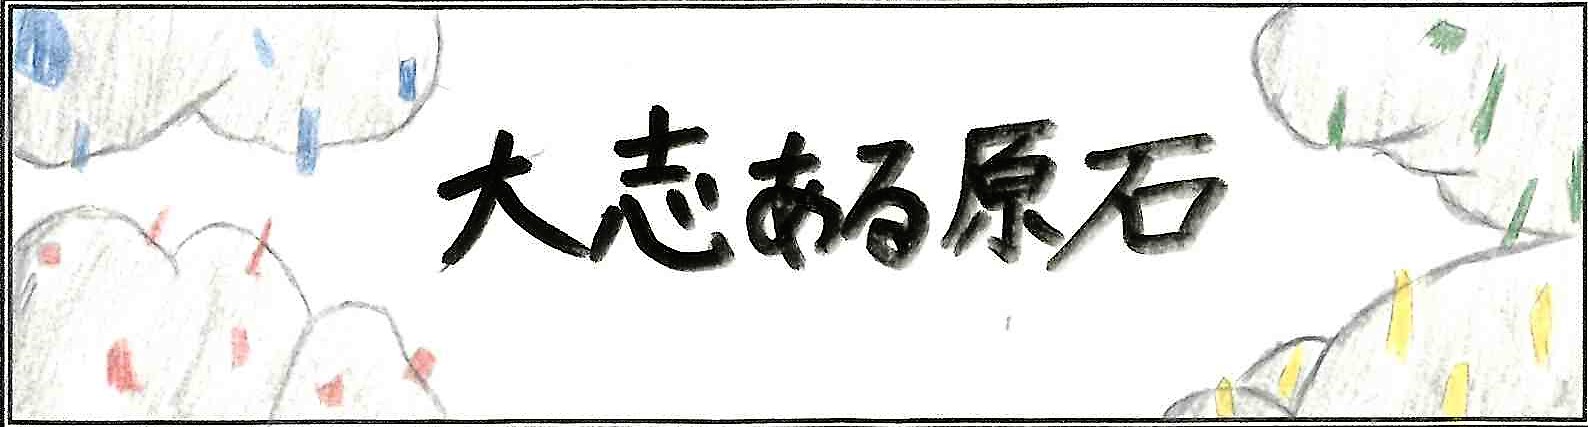 大志ある原石